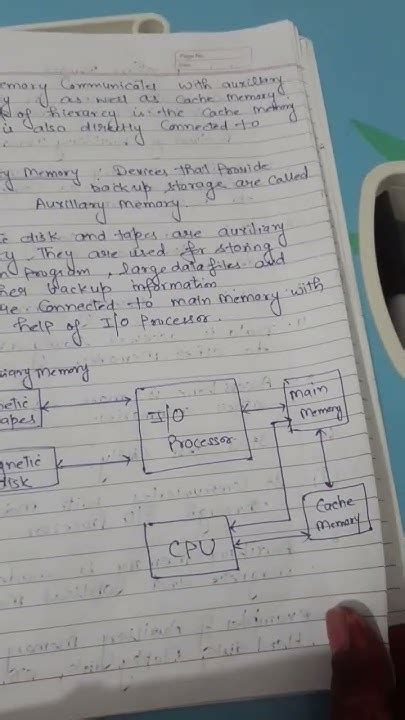 Page No.
Date
emory Communicates with auxiliary
y as well as cache memory
of hierarcy is the cache memory
is also directly connected to
y Memory : Devices that Provide
backup storage are called
Auxillary memory.
c disk and tapes are auxiliary
y. They are used for storing
program, large data files and
her backup information
re Connected to main memory with
help of I/O Processor.
iary memory
netic
apes
I/O
Processor
main
memory
gnetic
disk
Cache
Memory
CPU